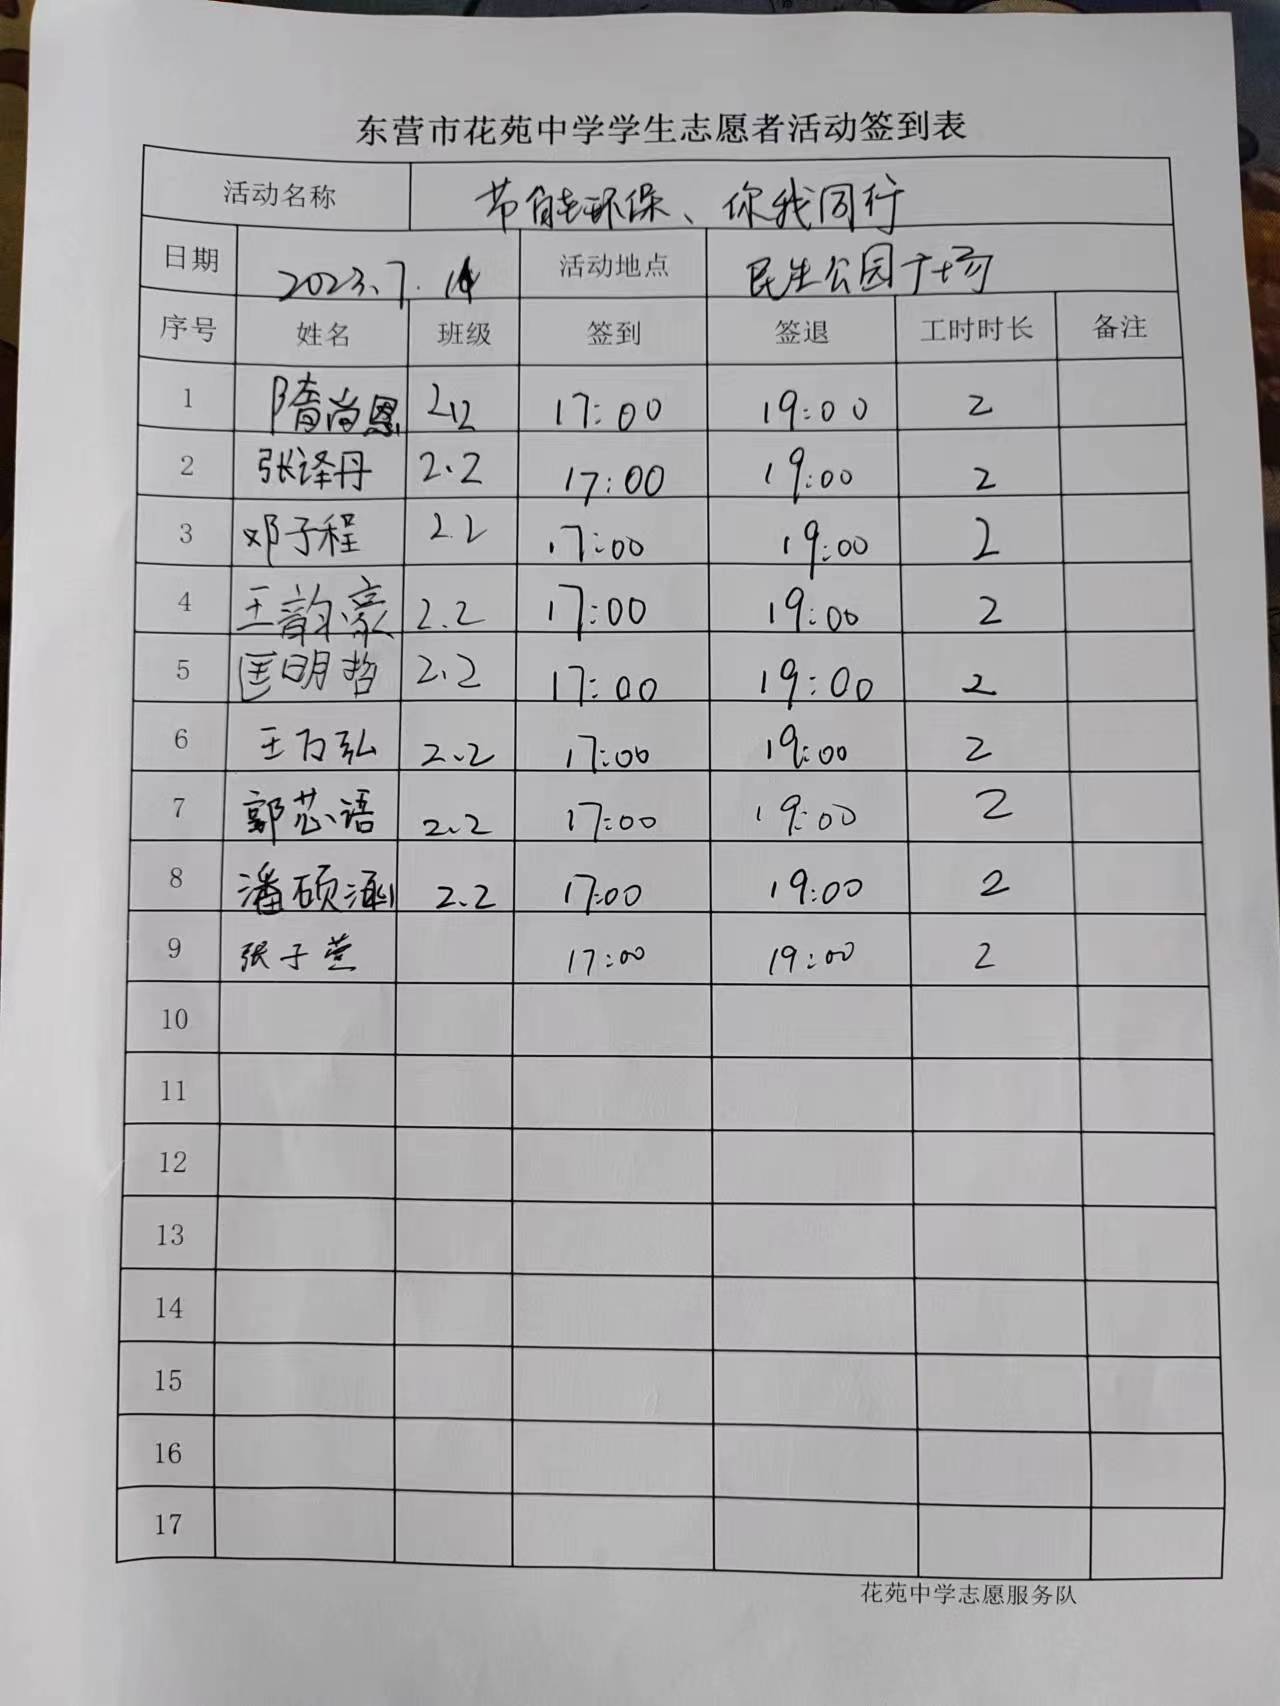 东营市花苑中学学生志愿者活动签到表
活动名称 节能环保、你我同行
日期 2023.7.14 活动地点 民生公园广场
序号 姓名 班级 签到 签退 工时时长 备注
1 隋尚恩 2.2 17:00 19:00 2
2 张译丹 2.2 17:00 19:00 2
3 邓子程 2.2 17:00 19:00 2
4 王韵豪 2.2 17:00 19:00 2
5 匡明哲 2.2 17:00 19:00 2
6 王万弘 2.2 17:00 19:00 2
7 郭芯语 2.2 17:00 19:00 2
8 潘硕涵 2.2 17:00 19:00 2
9 张子萱 17:00 19:00 2
10
11
12
13
14
15
16
17
花苑中学志愿服务队